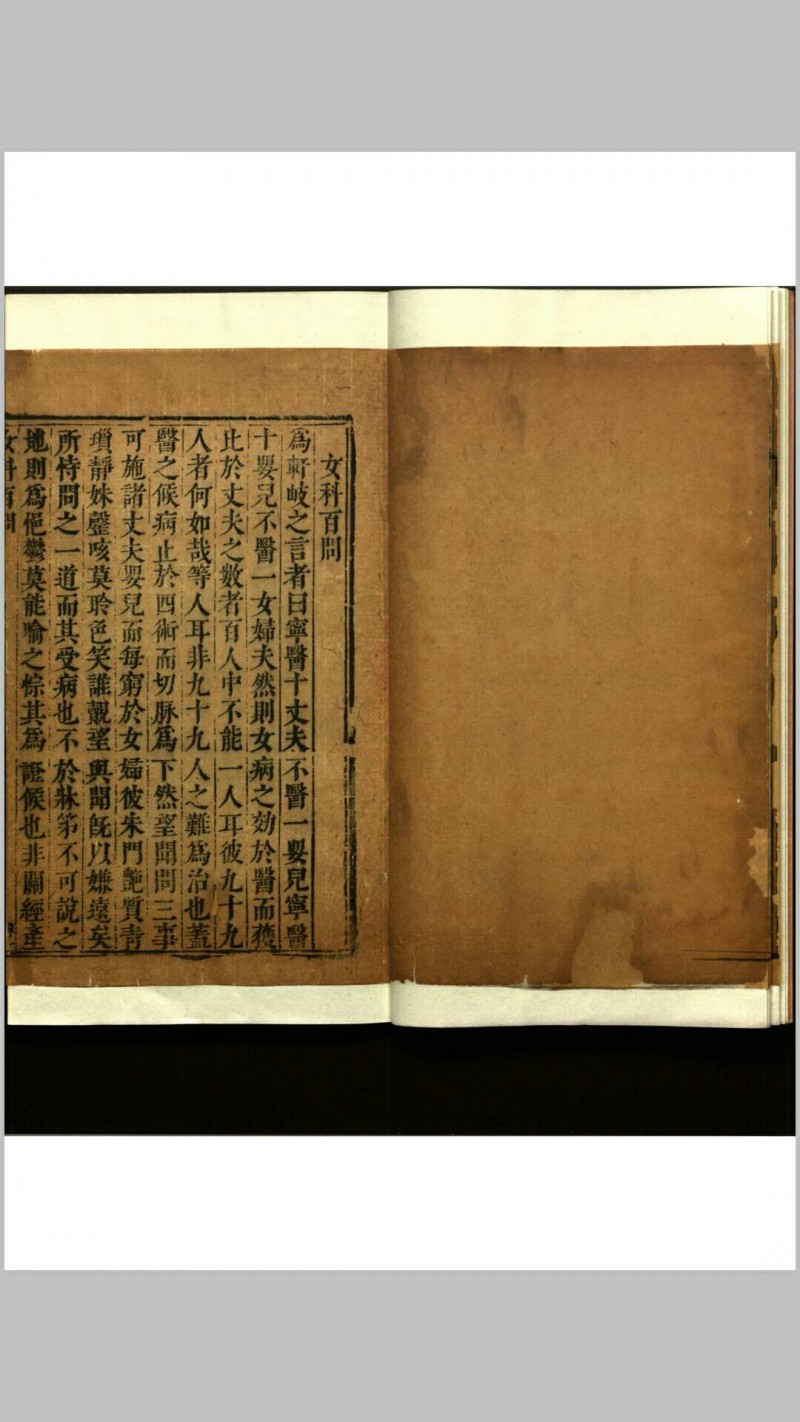 女科百問
為軒岐之言者曰寧醫十丈夫不醫一嬰兒寧醫
十嬰兒不醫一女婦夫然則女病之効於醫而獲
比於丈夫之數者百人中不能一人耳彼九十九
人者何如哉等人耳非九十九人之難為治也蓋
醫之候病止於四術而切脉為下然望聞問三事
可施諸丈夫嬰兒而每窮於女婦彼朱門艶質青
瑣靜姝謦咳莫聆色笑誰覿望與聞旣以嫌遠矣
所恃問之一道而其受病也不於牀笫不可說之
地則為悒鬱莫能喻之悰其為證候也非關經產
女科百問